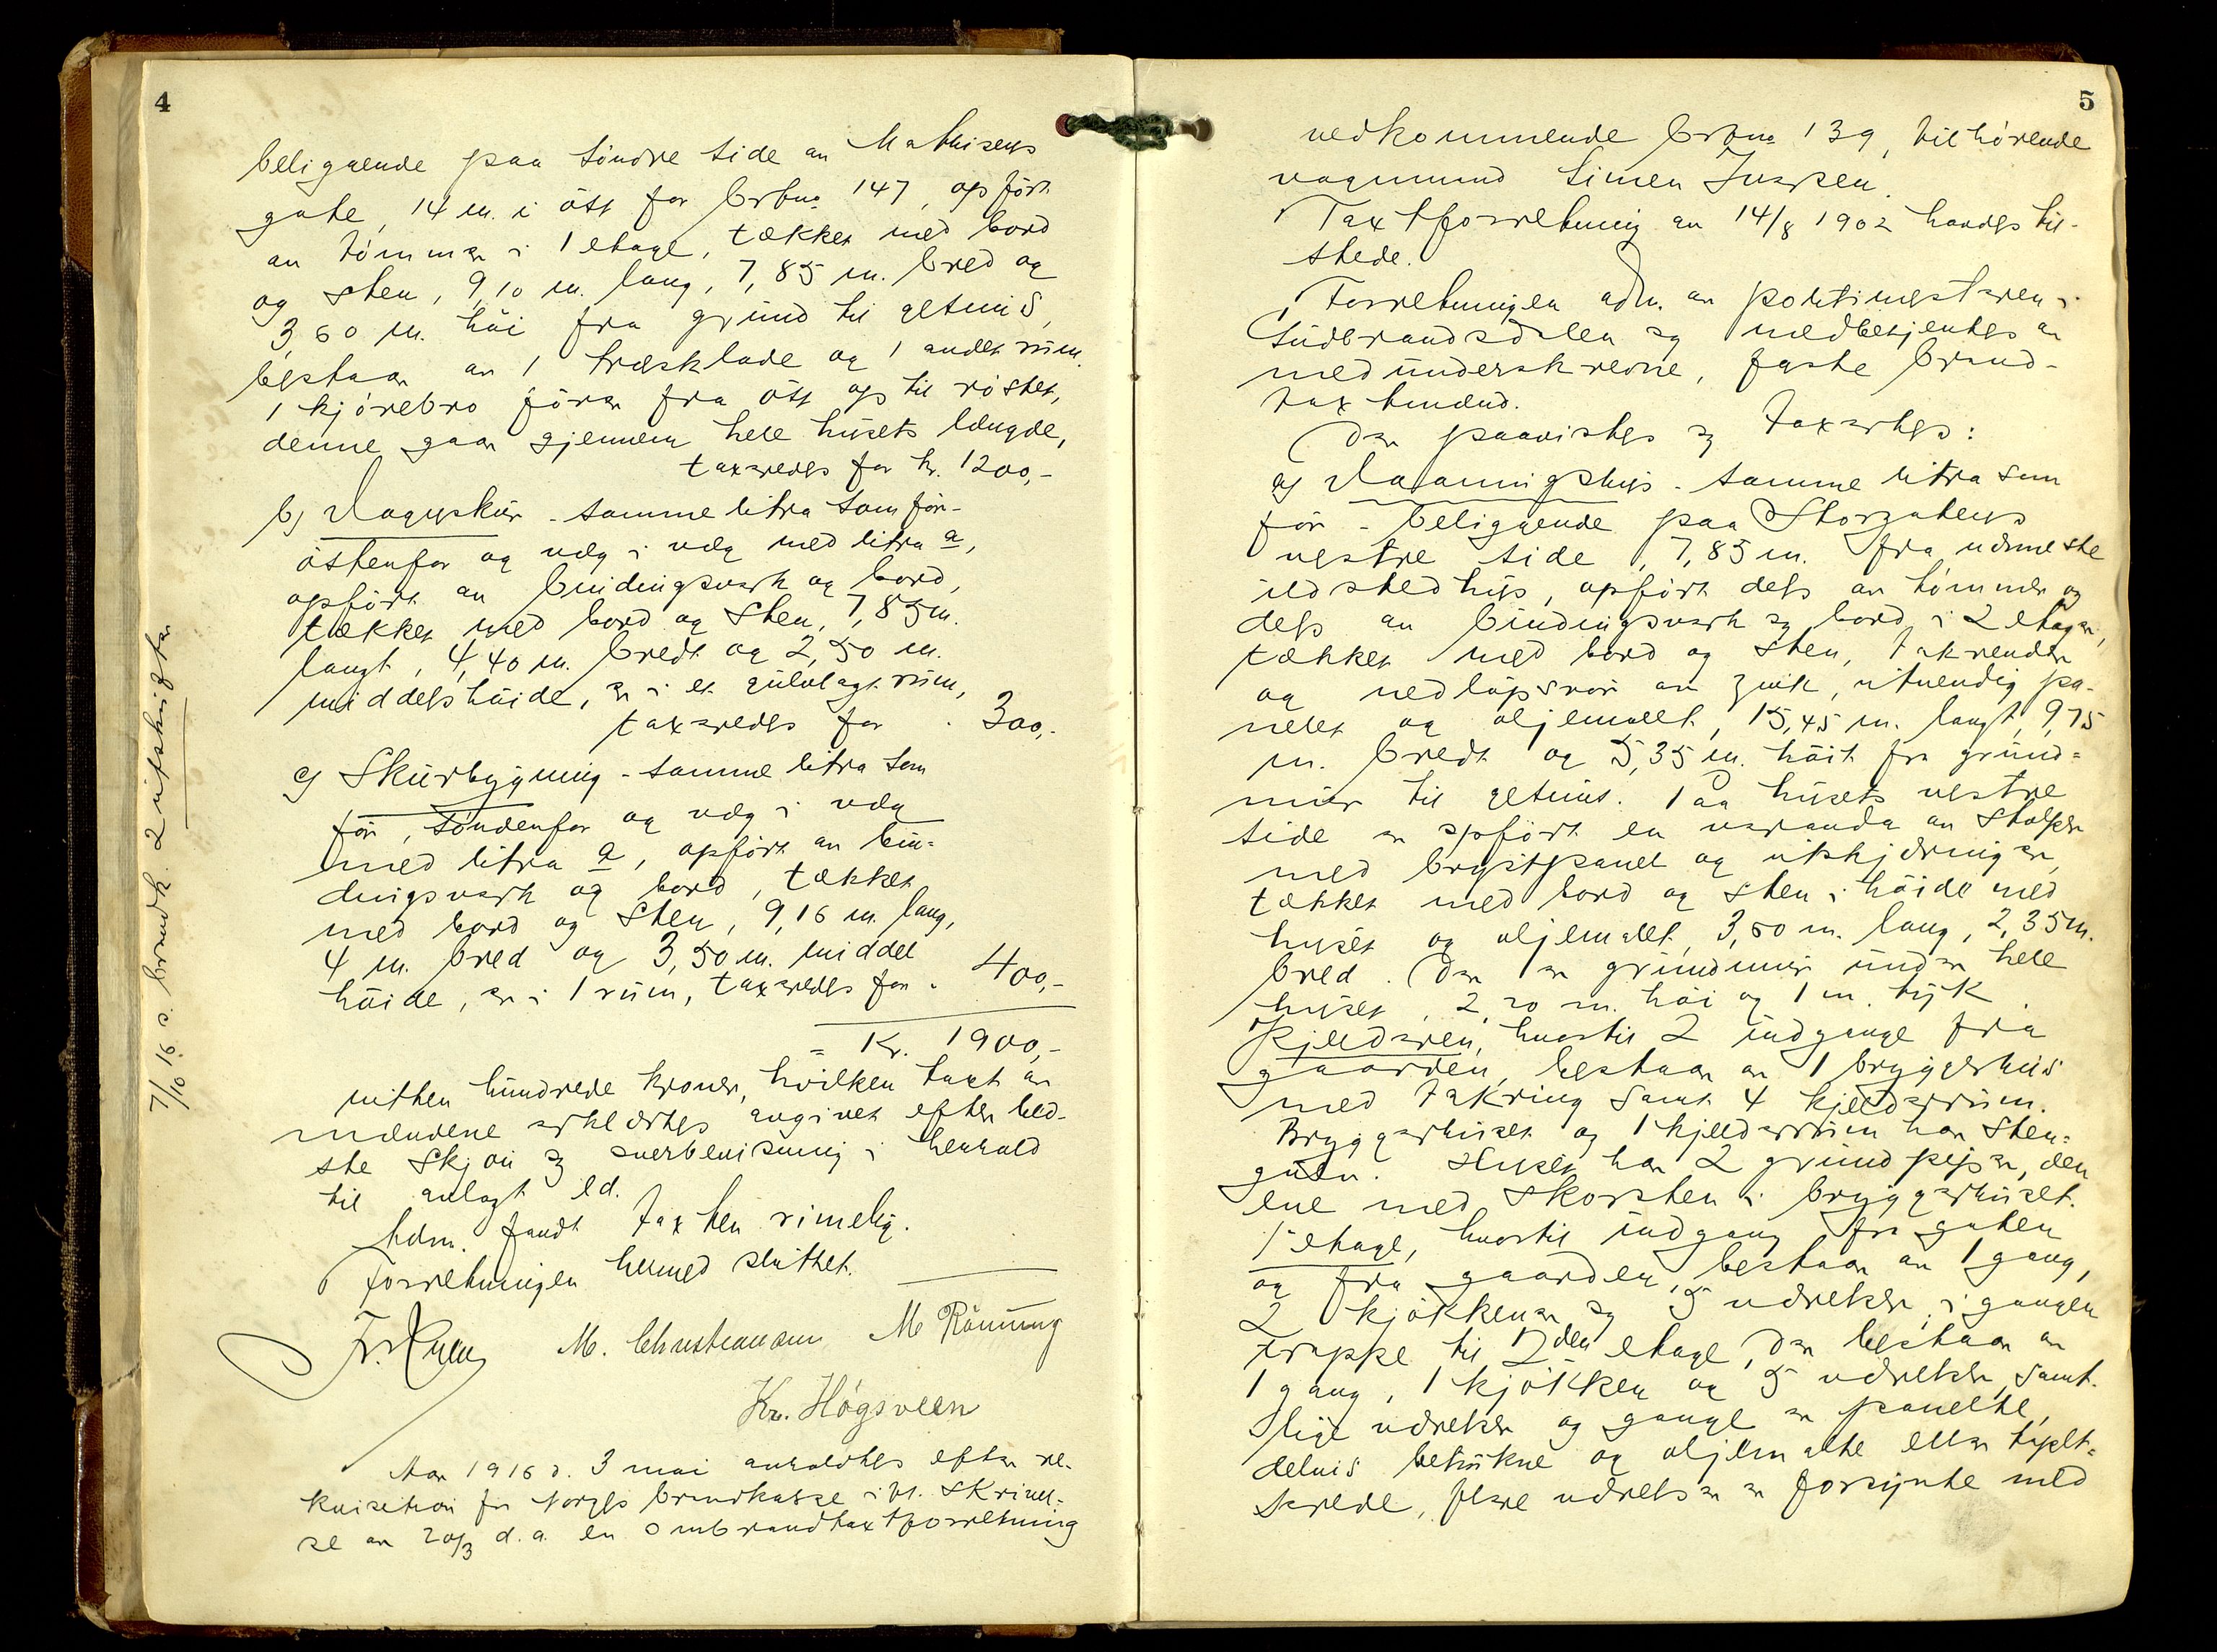 4
beliggende paa söndre side av Mathisens
gate, 14 m. i öst for brbno 147, opfört
av tömmer i 1 etage, tækket med bord
og sten, 9,10 m. lang, 7,85 m. bred og
3,60 m. höi fra grund til gesims,
bestaar av 1 træsklade og 1 andet rum.
1 kjörebro förer fra öst op til röstet,
denne gaar gjennem hele husets længde,
taxeredes for kr. 1200,-
b) Vognskur - samme litra som för -
östenfor og væg i væg med litra a,
opfört av bindingsverk og bord,
tækket med bord og sten, 7,85 m.
langt, 4,40 m. bredt og 2,50 m.
middelshöide, er i et gulvlagt rum,
taxeredes for . 300,-
c) Skurbygning - samme litra som
för, söndenfor og væg i væg
med litra a, opfört av bin-
dingsverk og bord, tækket
med bord og sten, 9,16 m. lang,
4 m. bred og 3,50 m. middel
höide, er i 1 rum, taxeredes for . 400,-
= Kr. 1900,-
nitten hundrede kroner, hvilken taxt av
mændene erklærtes avgivet efter bed-
ste skjön og overbevisning i henhold
til avlagt ed.
Adm. fandt taxten rimelig.
Forretningen hermed sluttet.
M. Christiansen M Rönning
Kr. Högsveen
Aar 1916 d. 3 mai avholdtes efter re-
kvisition fra Norges brandkasse i hl. skrivel-
se av 20/3 d.a. en ombrandtaxtforretning
7/10 16 s. brandk. 2 utskrifter
5
vedkommende brbno 139, tilhörende
vognmand Simen Iversen.
Taxtforretning av 14/8 1902 havdes til-
stede.
Forretningen adm. av politimesteren i
Gudbrandsdalen og medbetjentes av
medunderskrevne, faste brand-
taxtmænd.
Der paavistes og taxertes:
a) Vaaningshus - samme litra som
för - beliggende paa Storgatens
vestre side, 7,85 m. fra nærmeste
ildstedhus, opfört dels av tömmer og
dels av bindingsverk og bord i 2 etager,
tækket med bord og sten, takrender
og nedlöpsrör av zink, utvendig pa-
nelet og oljemalt, 15,45 m. langt, 9,75
m. bredt og 5,35 m. höit fra grund-
mur til gesims. Paa husets vestre
side er opfört en veranda av stolper
med brystpanel og utskjæringer,
tækket med bord og sten i höide med
huset og oljemalt, 3,50 m. lang, 2,35 m.
bred. Der er grundmur under hele
huset, 2,20 m. höi og 1 m. tyk.
Kjelderen, hvortil 2 indgange fra
gaarden, bestaar av 1 bryggerhus
med takring samt 4 kjelderrum.
Bryggerhuset og 1 kjelderrum har sten-
gulv. Huset har 2 grundpiper, den
ene med skorsten i bryggerhuset.
1ste etage, hvortil indgang fra gaten
og fra gaarden, bestaar av 1 gang,
2 kjökkener og 5 værelser, i gangen
trappe til 2den etage, der bestaar av
1 gang, 1 kjökken og 5 værelser, samt-
lige værelser og gange er panelte,
delvis betrukne og oljemalte eller tapet-
serede, flere værelser er forsynte med